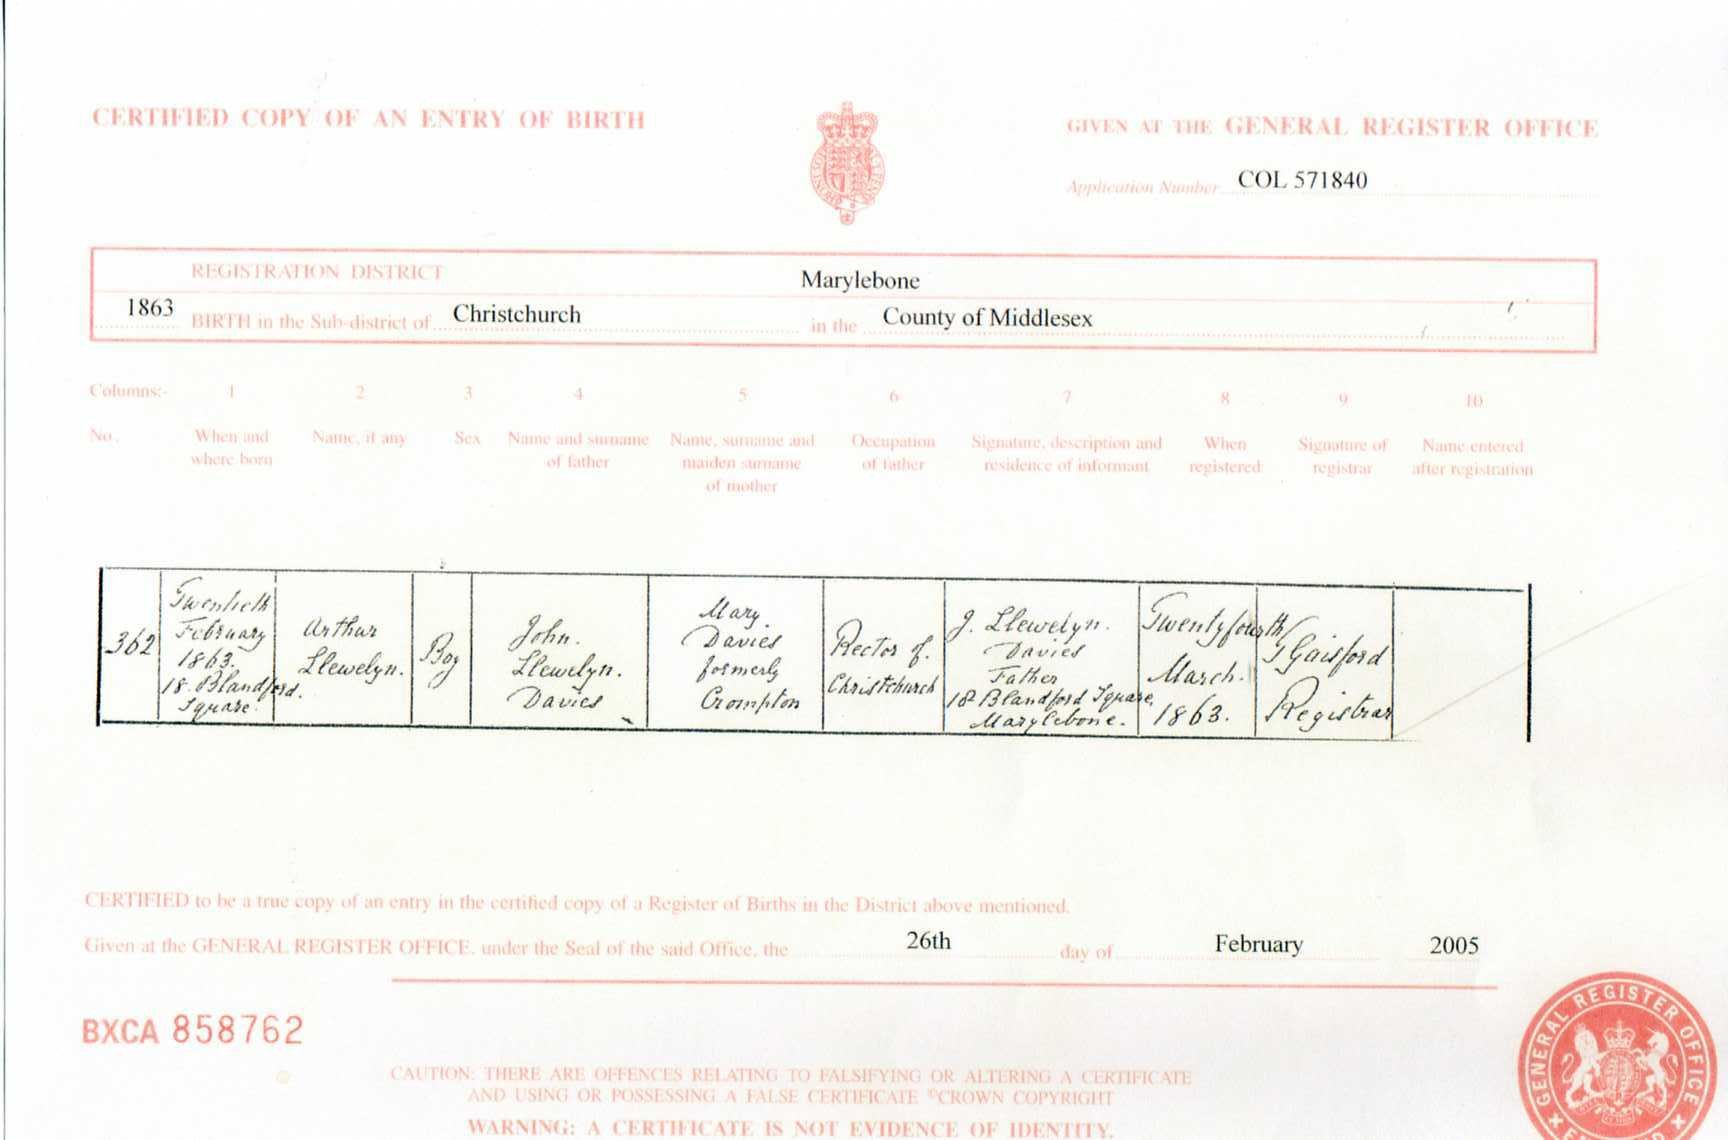 CERTIFIED COPY OF AN ENTRY OF BIRTH
GIVEN AT THE GENERAL REGISTER OFFICE
Application Number COL 571840
REGISTRATION DISTRICT Marylebone
1863 BIRTH in the Sub-district of Christchurch in the County of Middlesex
Columns:- 1 2 3 4 5 6 7 8 9 10
No. When and where born Name, if any Sex Name and surname of father Name, surname and maiden surname of mother Occupation of father Signature, description and residence of informant When registered Signature of registrar Name entered after registration
362
Twentieth
February
1863.
18. Blandford.
Square.
Arthur
Llewelyn.
Boy
John.
Llewelyn.
Davies
Mary.
Davies
formerly
Crompton
Rector of.
Christchurch
J. Llewelyn.
Davies
Father
18 Blandford Square,
Marylebone.
Twentyfourth
March.
1863.
Gaisford
Registrar
CERTIFIED to be a true copy of an entry in the certified copy of a Register of Births in the District above mentioned.
Given at the GENERAL REGISTER OFFICE, under the Seal of the said Office, the 26th day of February 2005
BXCA 858762
CAUTION: THERE ARE OFFENCES RELATING TO FALSIFYING OR ALTERING A CERTIFICATE
AND USING OR POSSESSING A FALSE CERTIFICATE ©CROWN COPYRIGHT
WARNING: A CERTIFICATE IS NOT EVIDENCE OF IDENTITY.
GENERAL REGISTER OFFICE